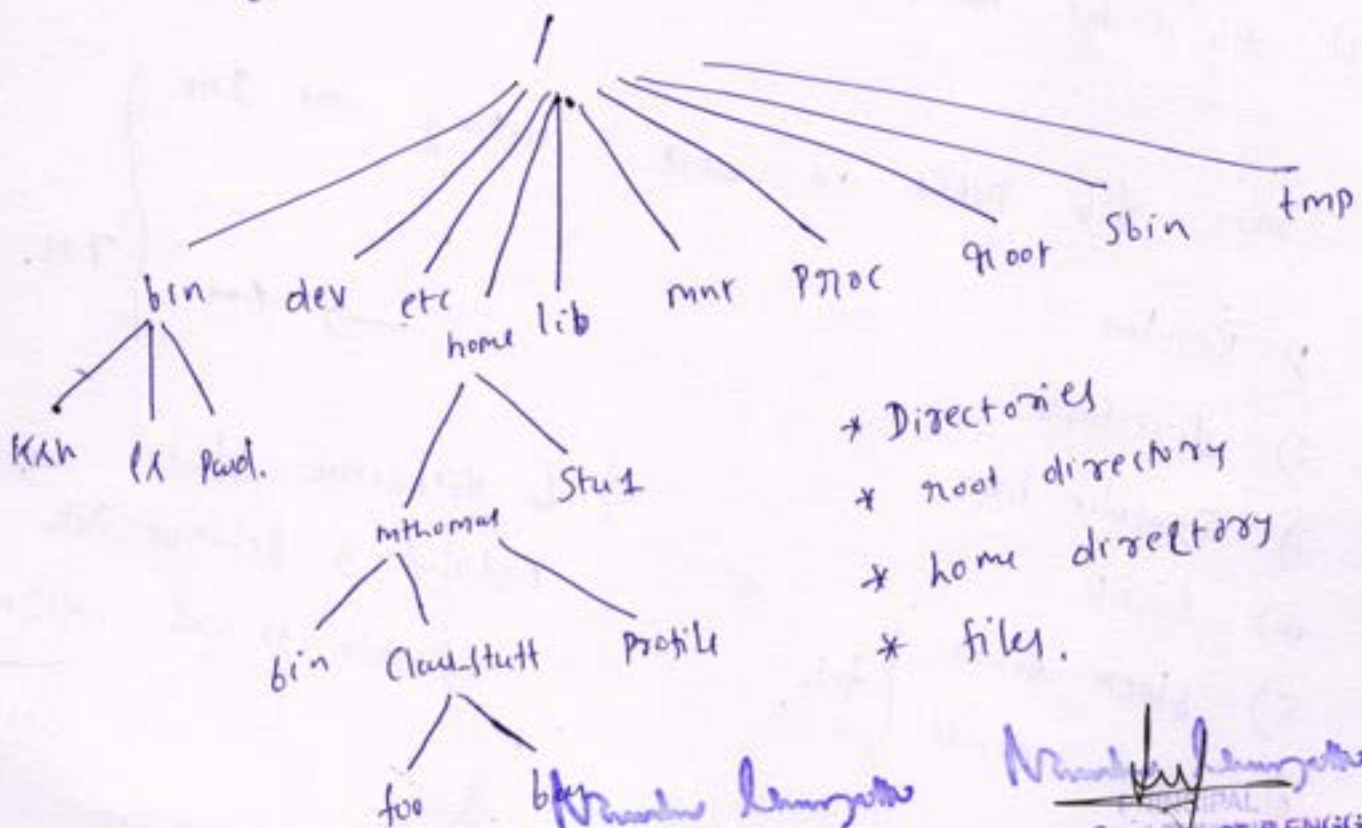 /
bin dev etc home lib mnt proc root Sbin tmp
ksh ls pwd.
mthomas Stu1
bin Class_stuff Profile
foo bar
* Directories
* root directory
* home directory
* files.